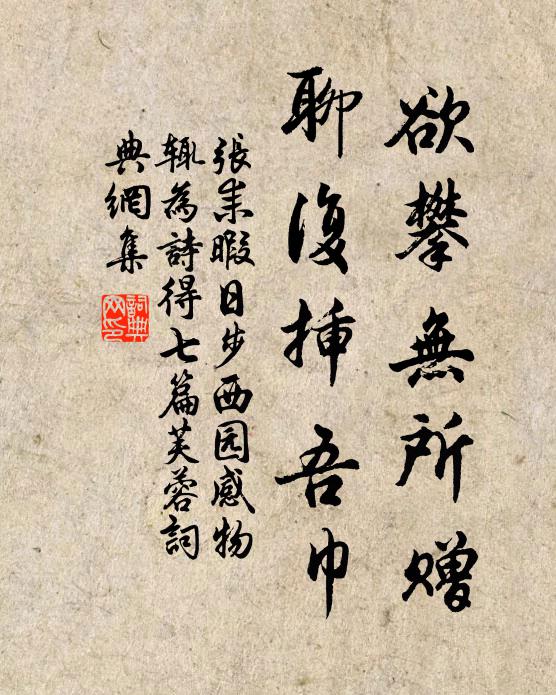 欲攀無所贈
聊復插吾巾
張耒暇日步西园感物
輒為詩得七篇芙蓉詞
典網集
詞典網印